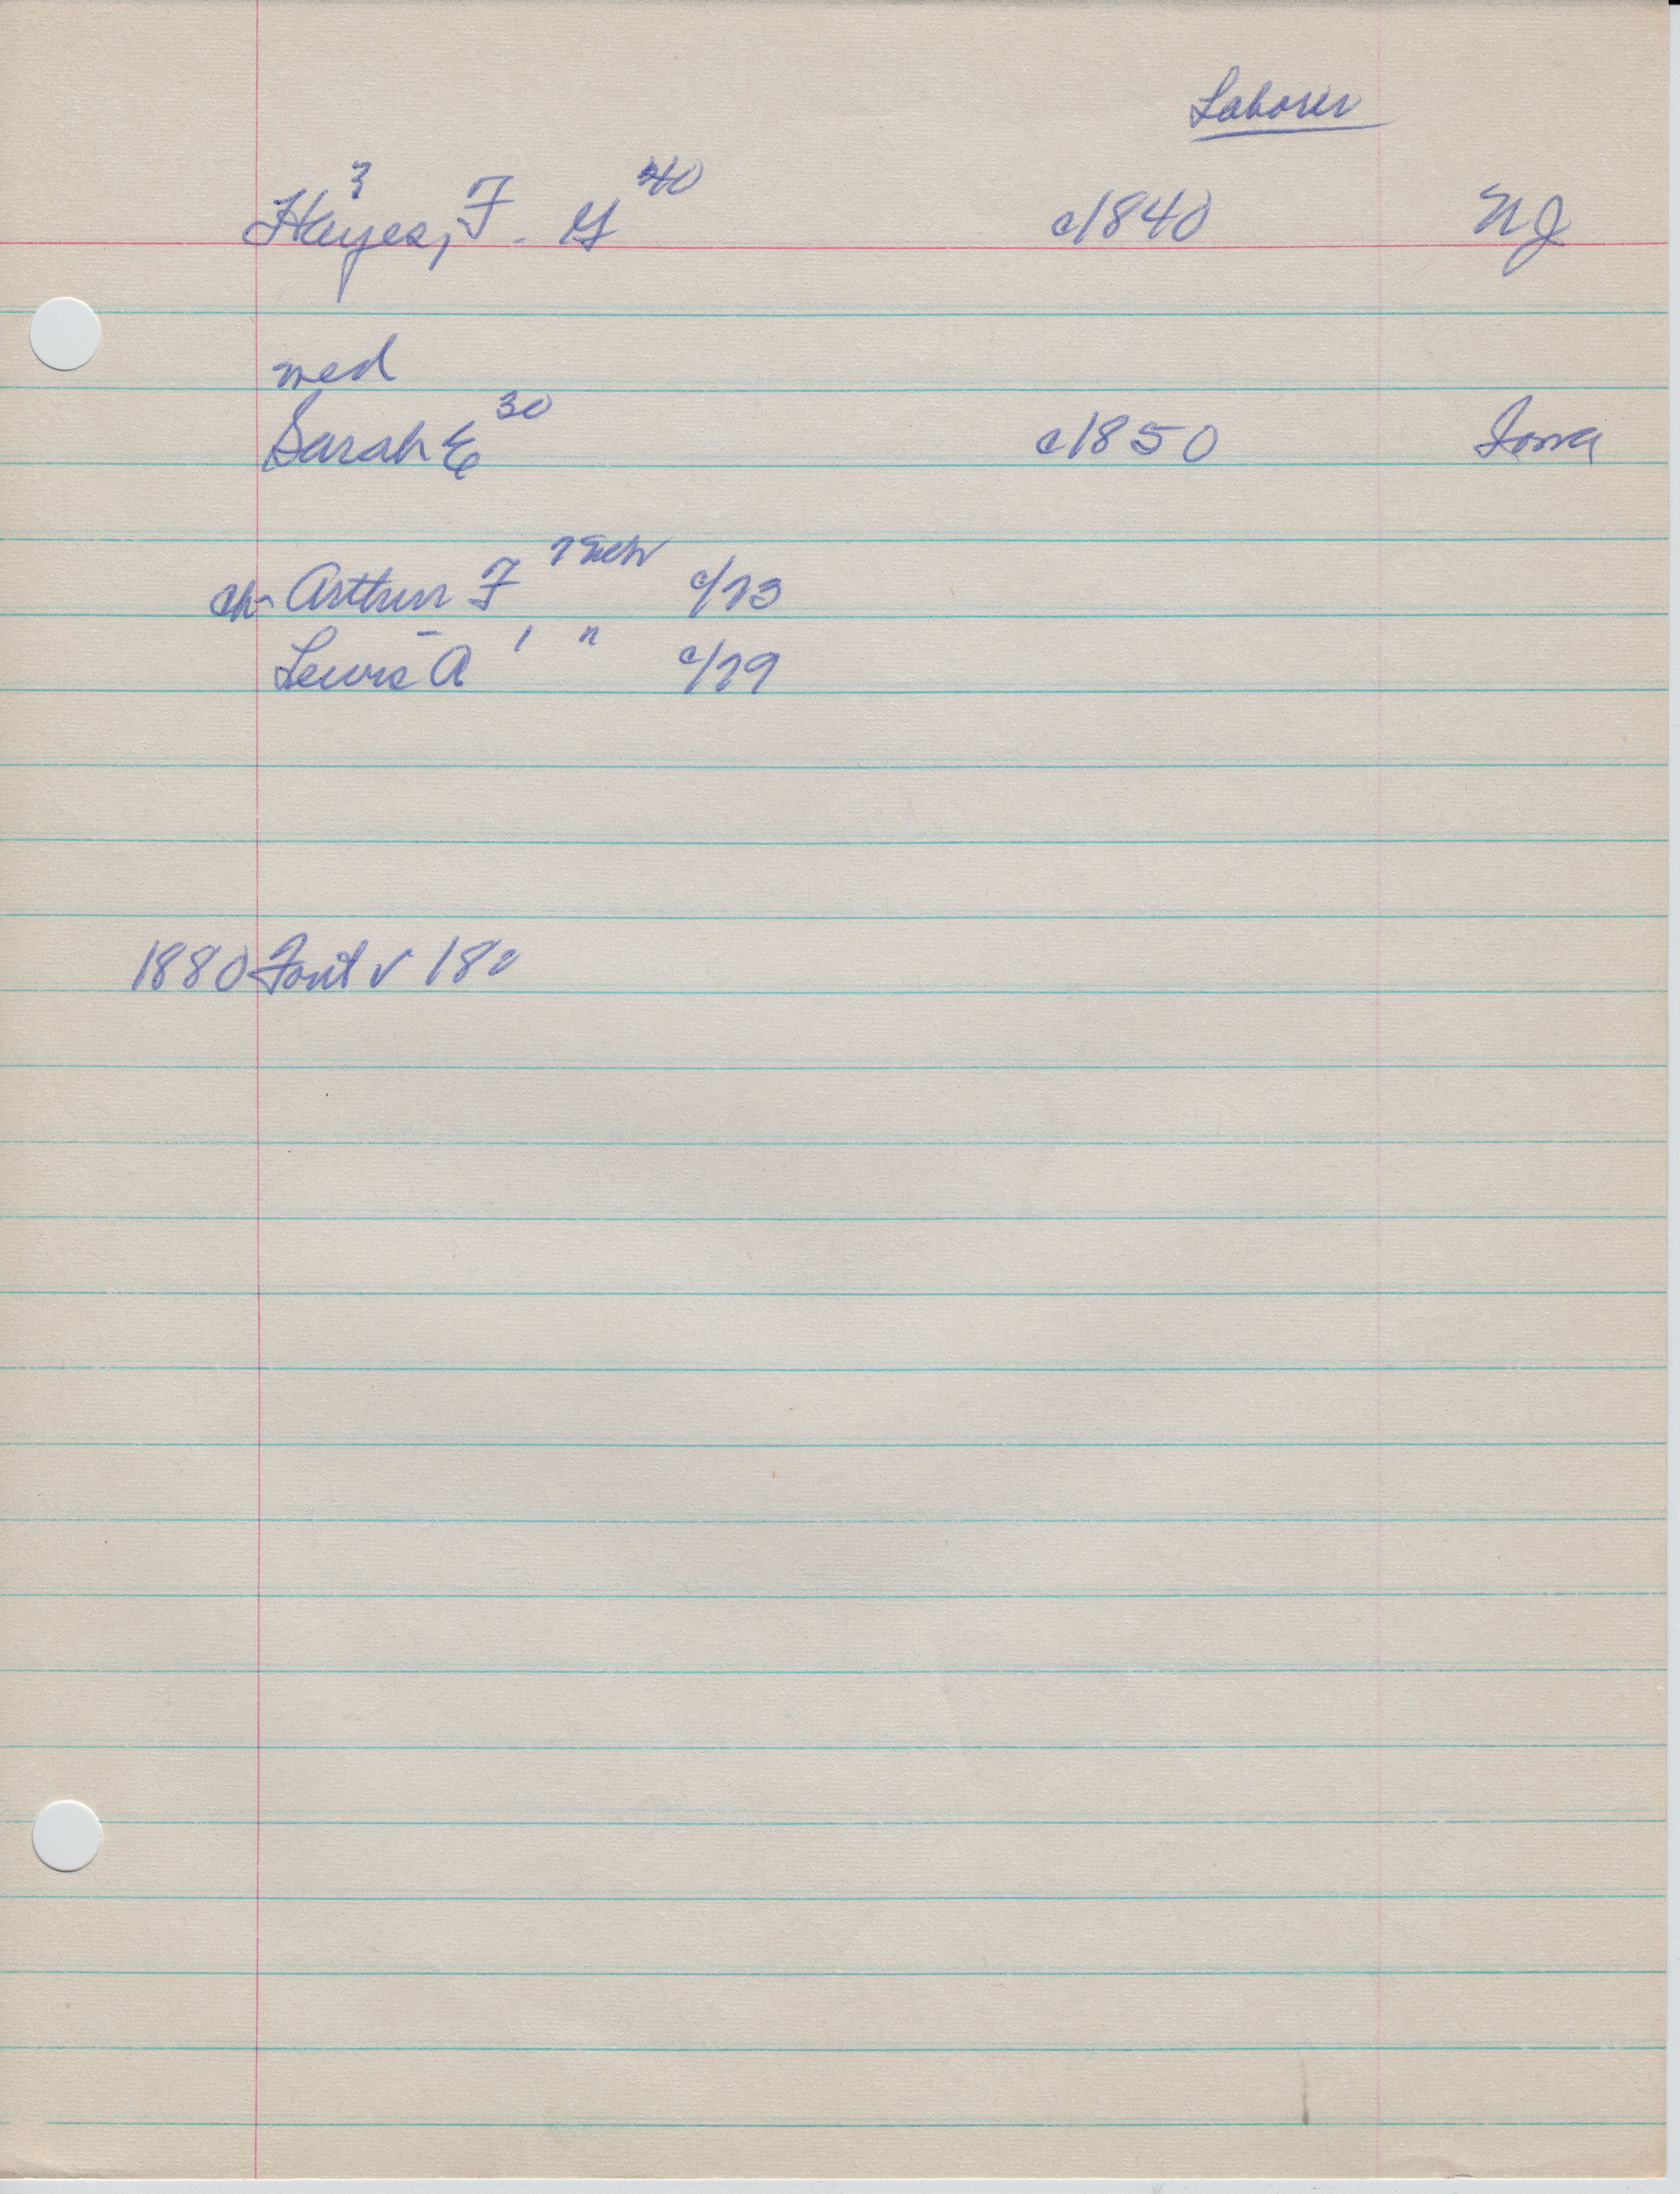 Laborer
3 40
Hayes, F. G c/1840 NJ
med
Sarah E 30 c/1850 Iowa
ch- Arthur F 7 c/73
Lewis A 1 " c/79
1880 v 180